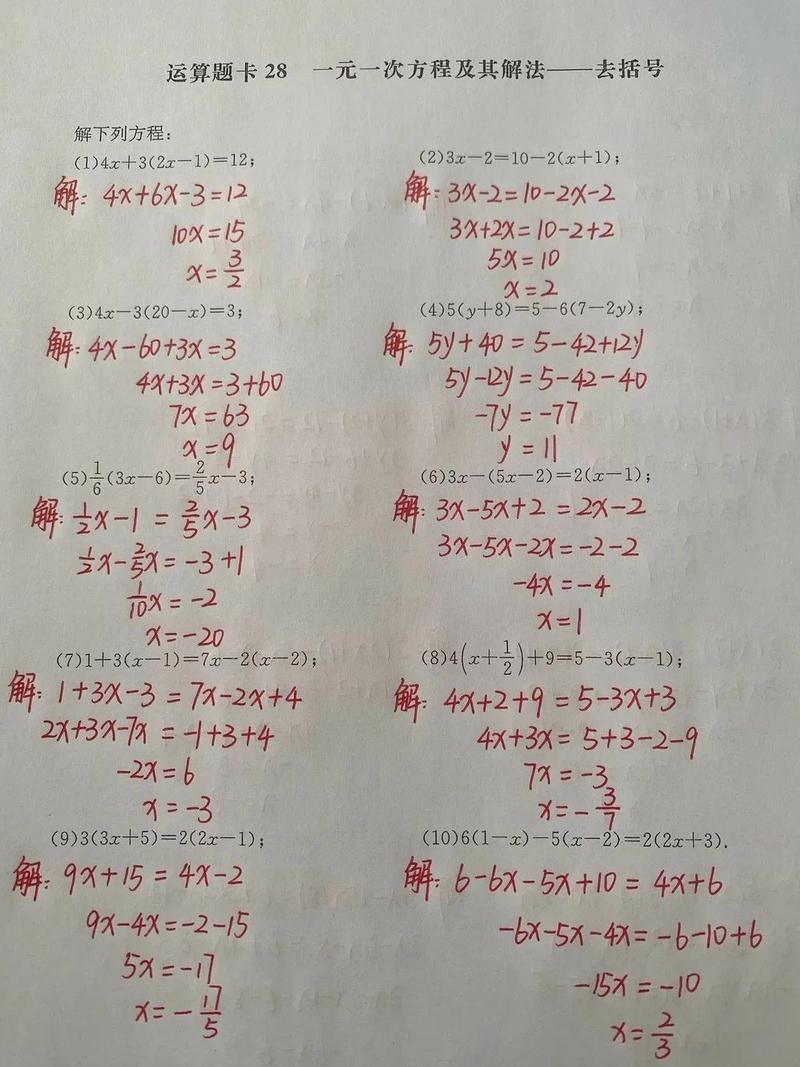 运算题卡28 一元一次方程及其解法——去括号
解下列方程:
(1)4x+3(2x-1)=12;
解: 4x+6x-3=12
10x=15
x=3/2
(2)3x-2=10-2(x+1);
解: 3x-2=10-2x-2
3x+2x=10-2+2
5x=10
x=2
(3)4x-3(20-x)=3;
解: 4x-60+3x=3
4x+3x=3+60
7x=63
x=9
(4)5(y+8)=5-6(7-2y);
解: 5y+40=5-42+12y
5y-12y=5-42-40
-7y=-77
y=11
(5)1/6(3x-6)=2/5x-3;
解: 1/2x-1=2/5x-3
1/2x-2/5x=-3+1
1/10x=-2
x=-20
(6)3x-(5x-2)=2(x-1);
解: 3x-5x+2=2x-2
3x-5x-2x=-2-2
-4x=-4
x=1
(7)1+3(x-1)=7x-2(x-2);
解: 1+3x-3=7x-2x+4
2x+3x-7x=-1+3+4
-2x=6
x=-3
(8)4(x+1/2)+9=5-3(x-1);
解: 4x+2+9=5-3x+3
4x+3x=5+3-2-9
7x=-3
x=-3/7
(9)3(3x+5)=2(2x-1);
解: 9x+15=4x-2
9x-4x=-2-15
5x=-17
x=-17/5
(10)6(1-x)-5(x-2)=2(2x+3).
解: 6-6x-5x+10=4x+6
-6x-5x-4x=-6-10+6
-15x=-10
x=2/3